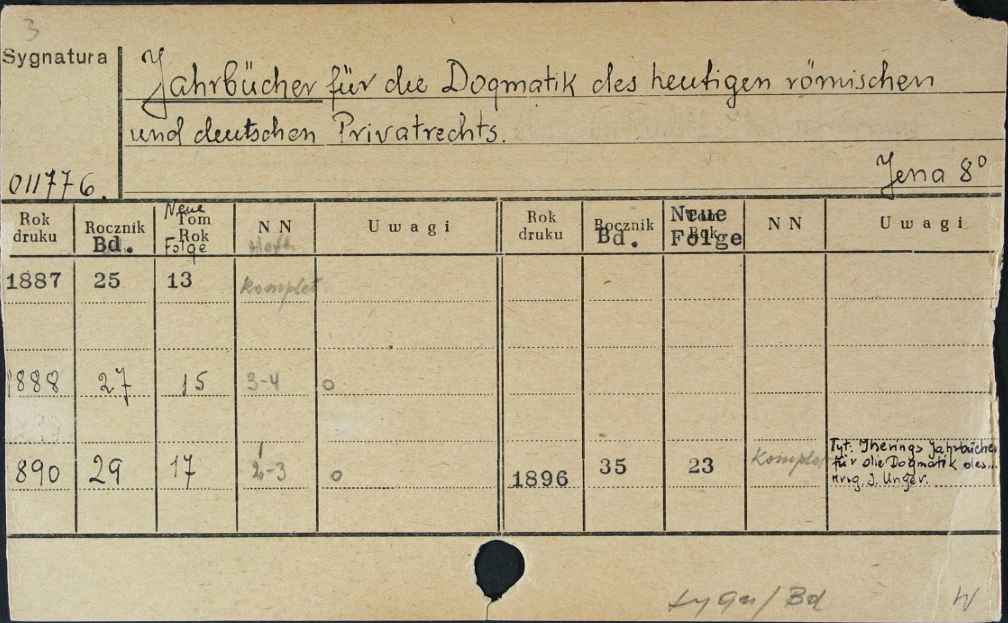 3
Sygnatura
Jahrbücher für die Dogmatik des heutigen römischen
und deutschen Privatrechts.
Jena 8°
011776.
Rok druku Rocznik Bd. Neue Tom Rok Folge NN Uwagi Rok druku Rocznik Bd. Neue Folge NN Uwagi
1887 25 13 komplet
1888 27 15 3-4 o
890 29 17 2-3 o 1896 35 23 Komplet Tyt. Jherings Jahrbücher
für die Dogmatik des...
Hrsg. J. Unger.